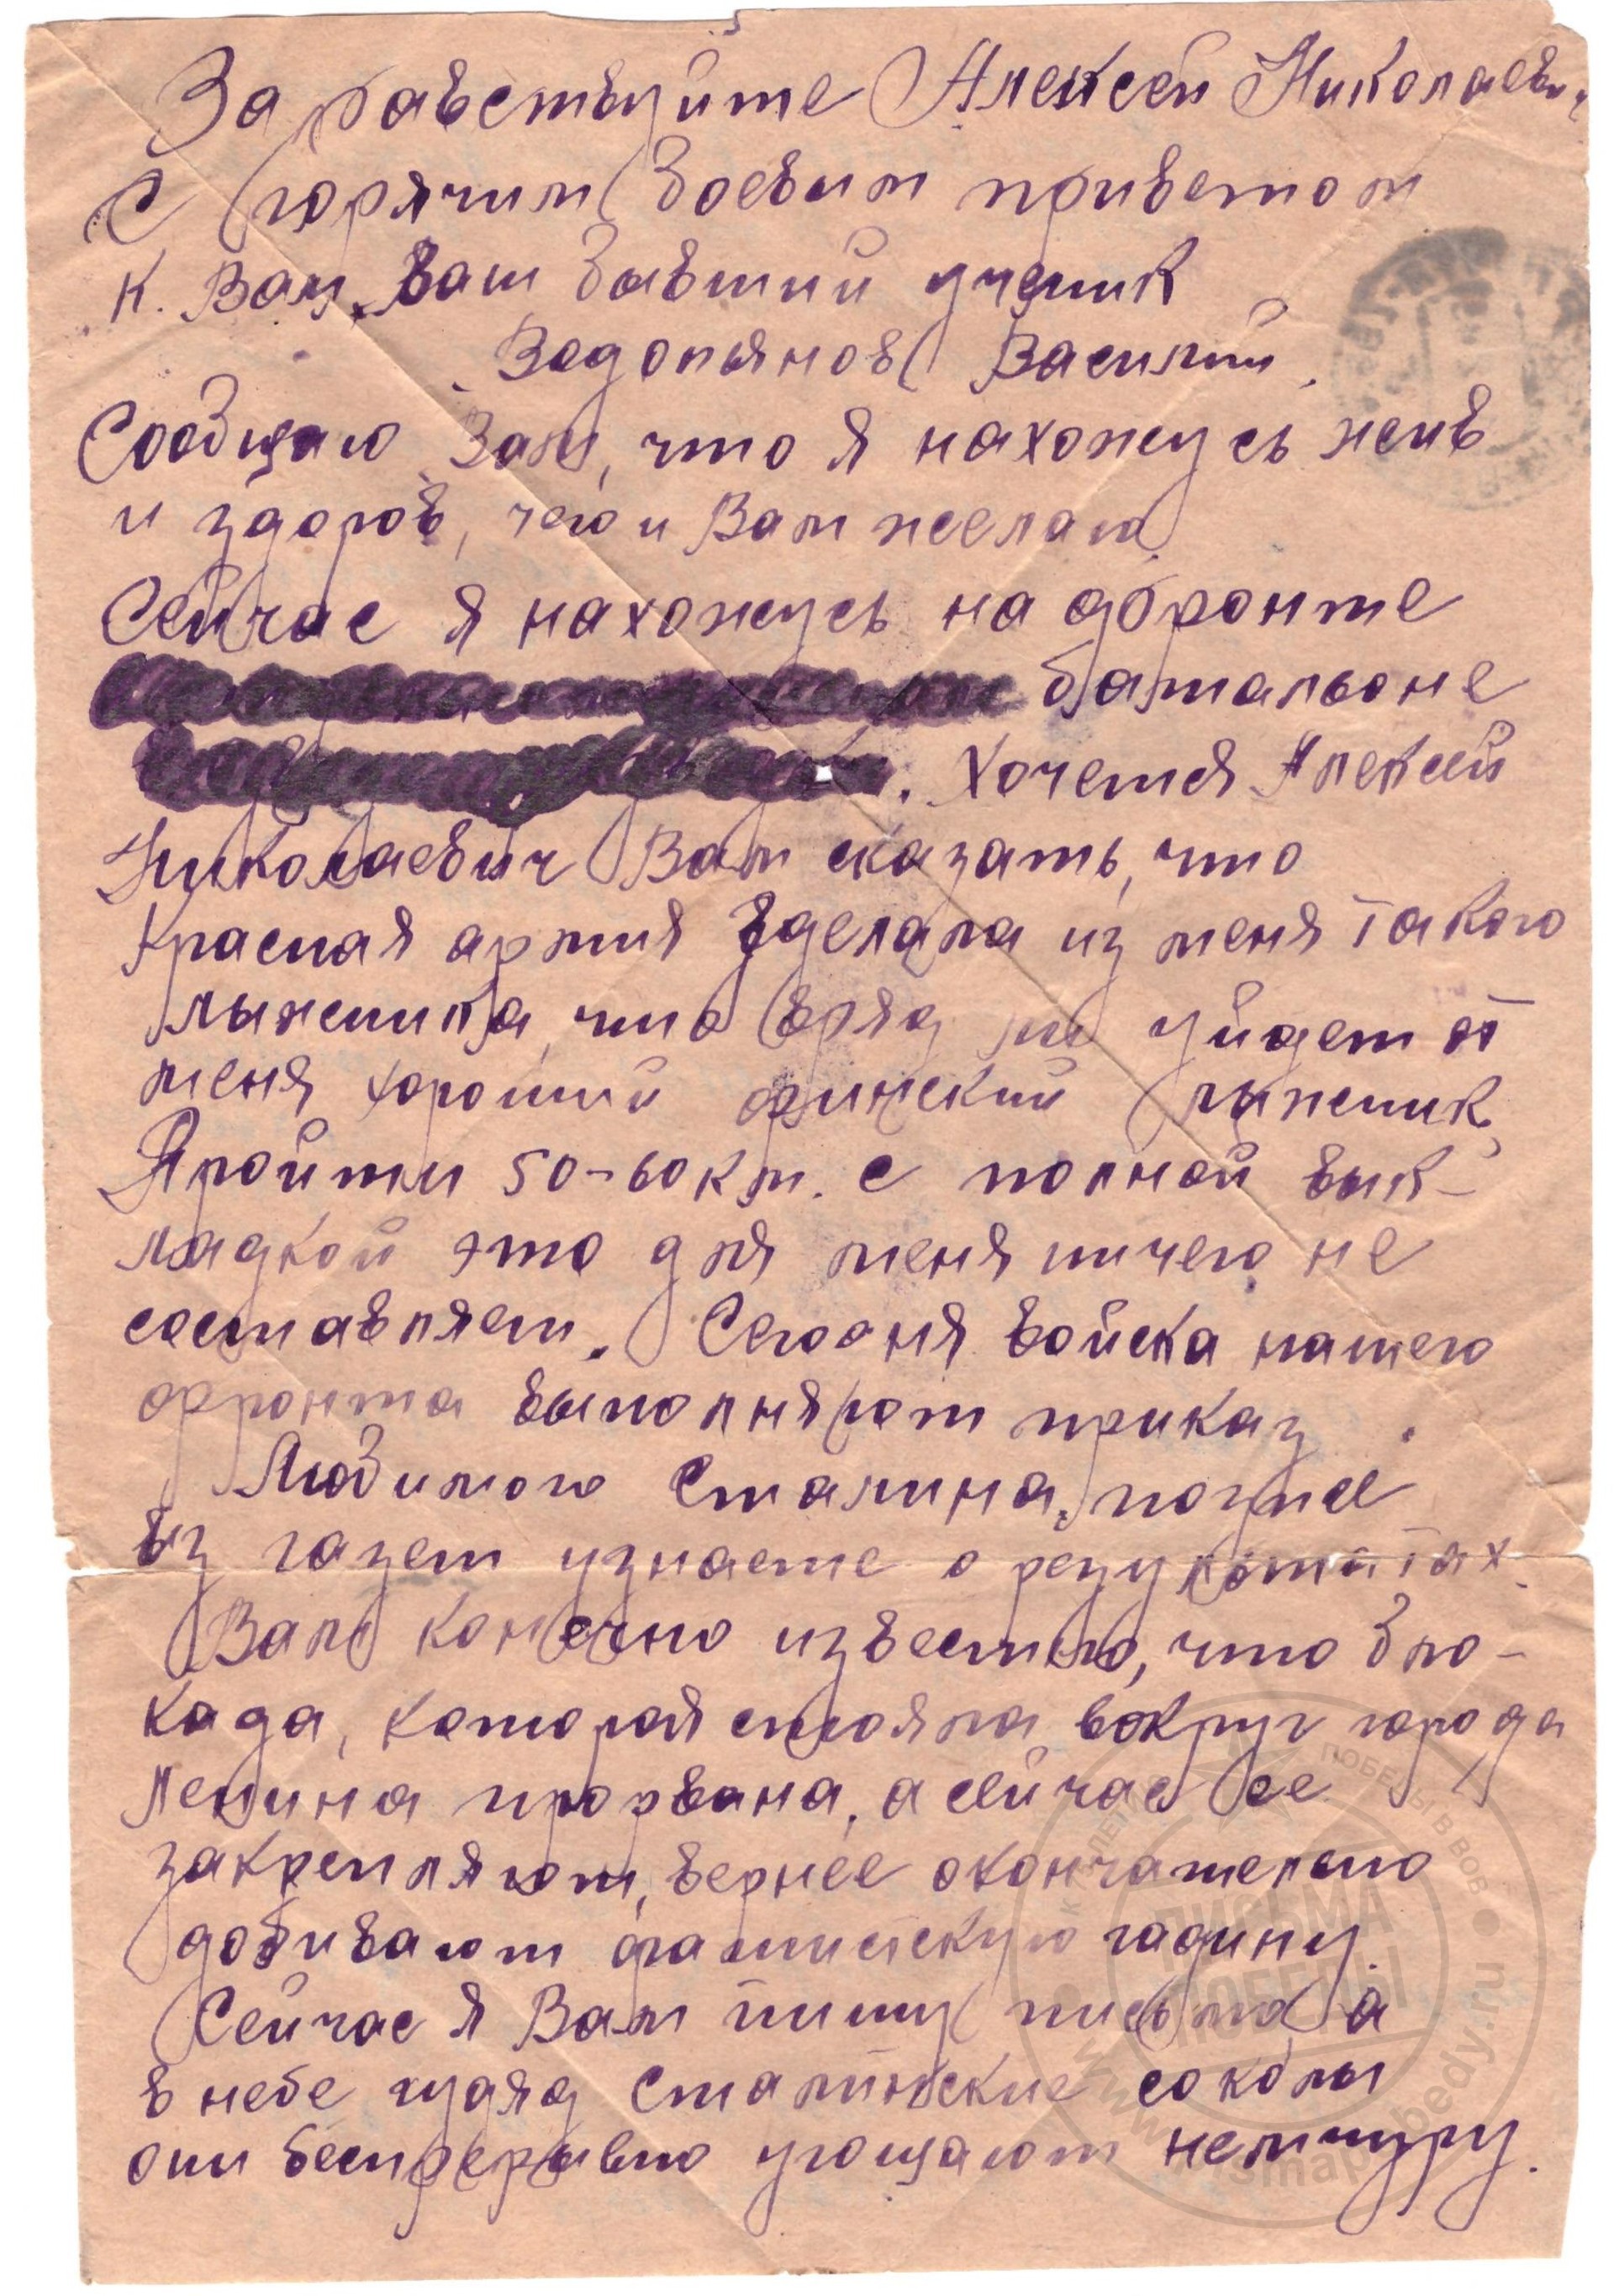 Здравствуйте Алексей Николаевич
С горячим боевым приветом
к Вам, Ваш бывший ученик
Водопьянов Василий.
Сообщаю Вам, что я нахожусь жив
и здоров, чего и Вам желаю
Сейчас я нахожусь на фронте
батальоне
. Хочется Алексей
Николаевич Вам сказать, что
Красная армия зделала из меня такого
лыжника, что вряд ли уйдет от
меня хороший финский лыжник,
Пройти 50-60 км. с полной вык-
ладкой это для меня ничего не
составляет. Сегодня войска нашего
фронта выполняют приказ
Любимого Сталина, позже
из газет узнаете о результатах.
Вам конечно известно, что бло-
када, которая стояла вокруг города
Ленина прорвана, а сейчас ее
закрепляют, вернее окончательно
добивают фашискую гадину.
Сейчас я Вам пишу письмо а
в небе гудяд Сталинские соколы
они беспрерывно угощают немчуру.
ПИСЬМА
ПОБЕДЫ